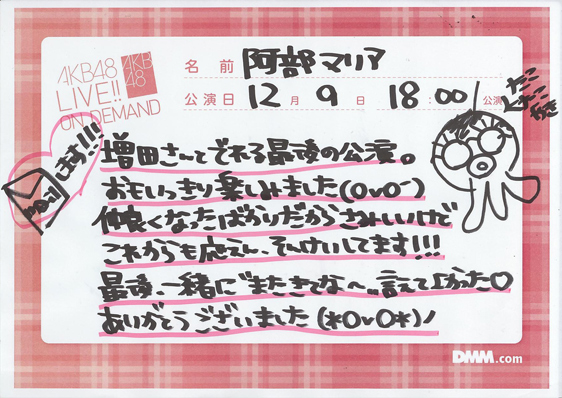 AKB48
LIVE!!
ON DEMAND
AKB
48
名前 阿部マリア
公演日 12月9日 18:00公演
たこ
やき
します!!!
増田さんとでれる最後の公演。
おもいっきり楽しみました(OvO-)
仲良くなったばかりだからさみしいけど
これからも応えん、そんけいしてます!!!
最後、一緒に"またきてな〜"言えてよかった♡
ありがとうございました(*OvO*)ノ
DMM.com